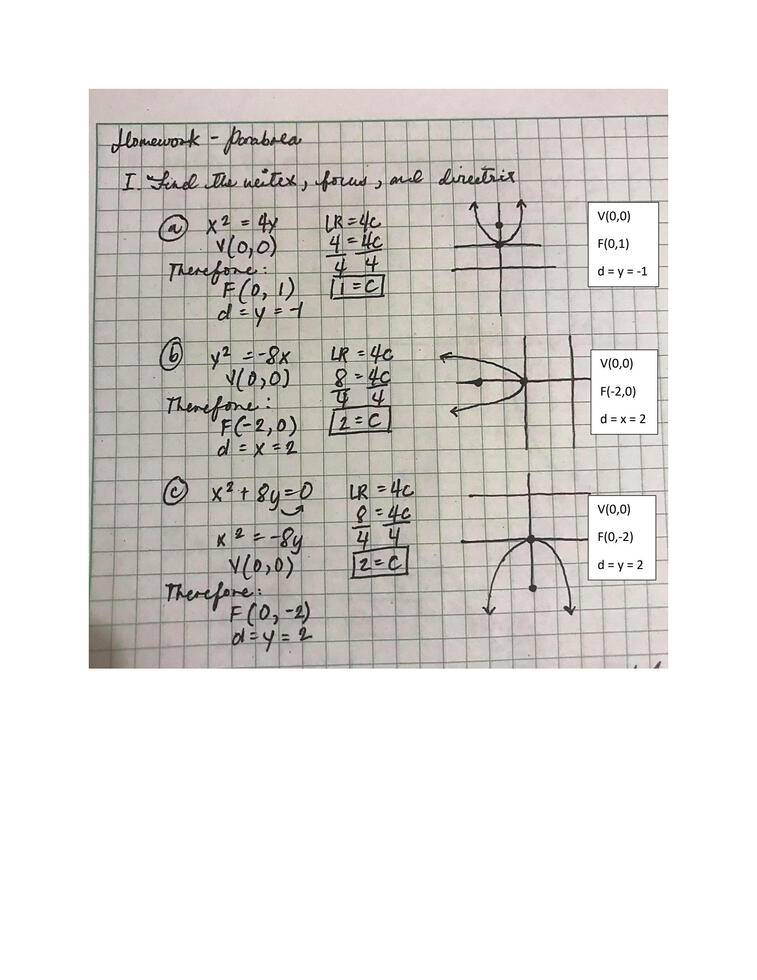 Homework - Parabola
I. Find the vertex, focus, and directrix
ⓐ x² = 4y LR = 4c
V(0,0) 4 = 4c
4 4
Therefore:
F(0, 1) 1 = c
d = y = -1
V(0,0)
F(0,1)
d = y = -1
ⓑ y² = -8x LR = 4c
V(0,0) 8 = 4c
4 4
Therefore:
F(-2,0) 2 = c
d = x = 2
V(0,0)
F(-2,0)
d = x = 2
ⓒ x² + 8y = 0 LR = 4c
8 = 4c
x² = -8y 4 4
V(0,0) 2 = c
Therefore:
F(0, -2)
d = y = 2
V(0,0)
F(0,-2)
d = y = 2